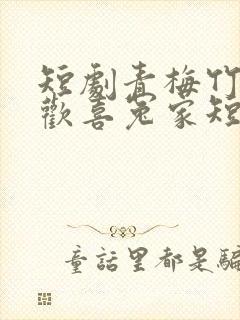 短劇青梅竹
歡喜冤家短
童話里都是騙